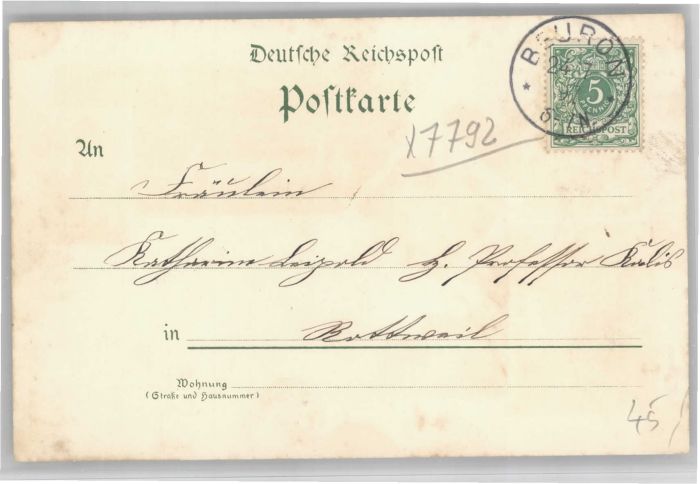 Deutsche Reichspost
Postkarte
BEURON
5
PFENNIG
REICHSPOST
x7792
An
Fräulein
Katharina Leipold H. Professor Kalis
in Rottweil
Wohnung
(Straße und Hausnummer)
45